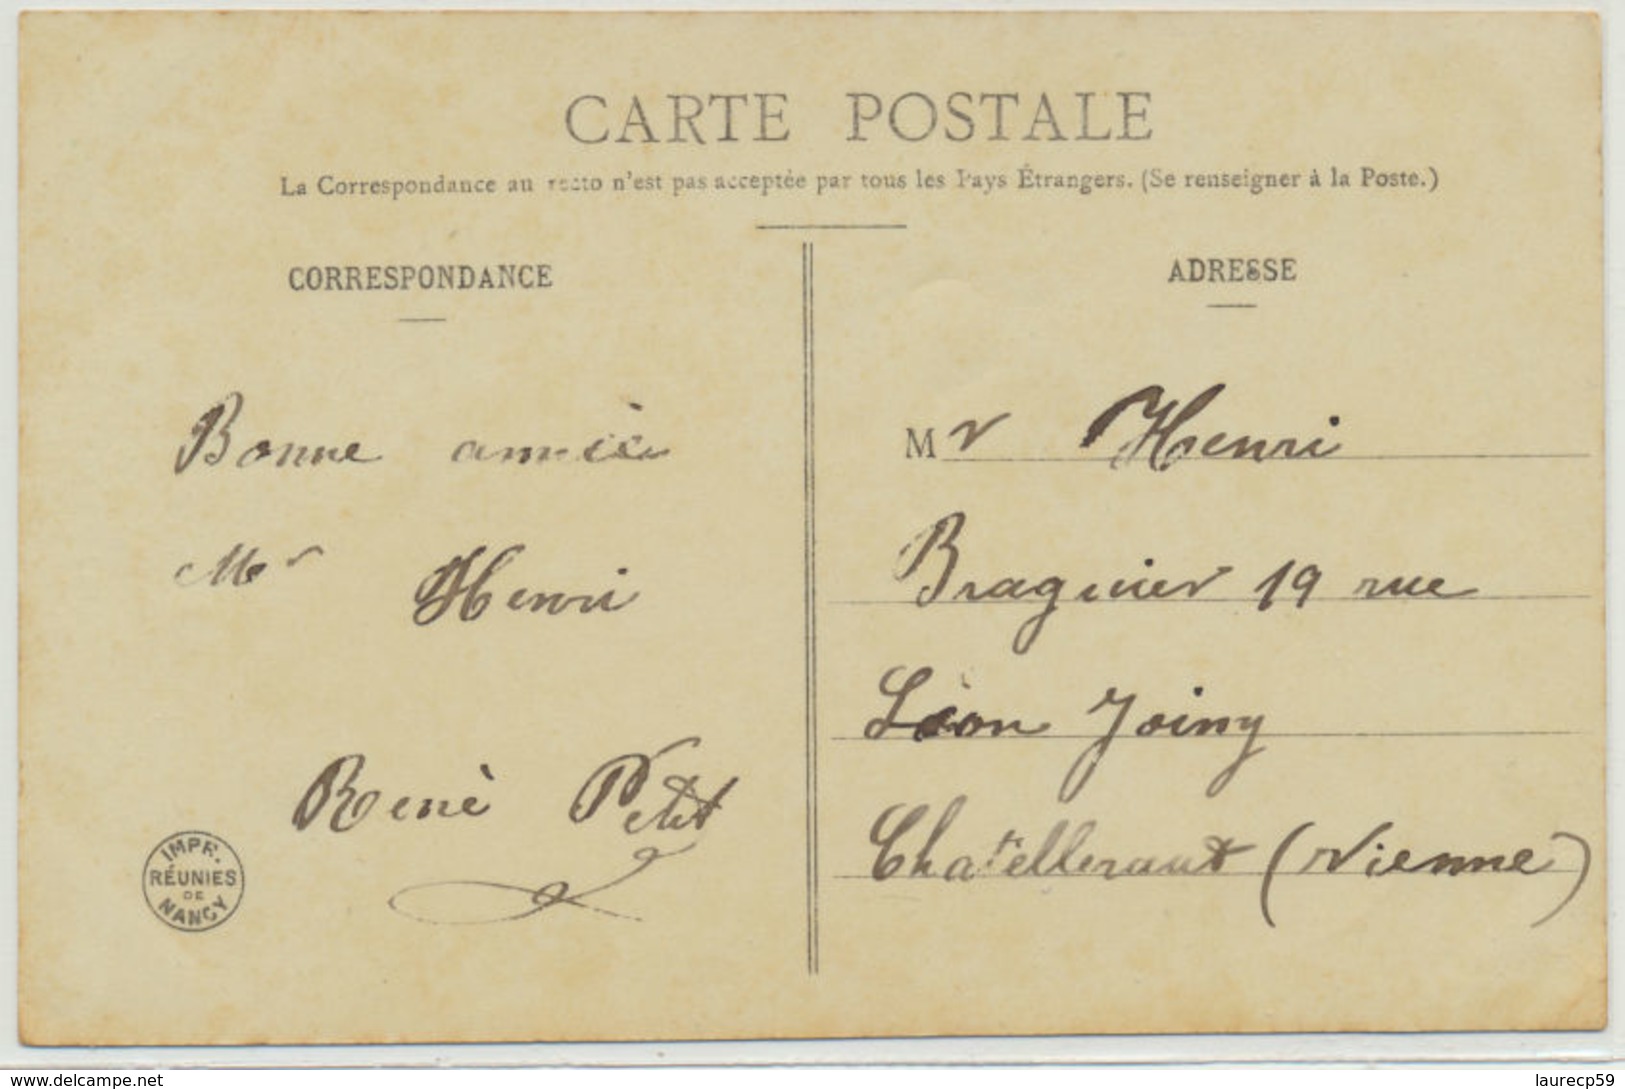 CARTE POSTALE
La Correspondance au recto n'est pas acceptée par tous les Pays Étrangers. (Se renseigner à la Poste.)
CORRESPONDANCE
Bonne année
Mr Henri
René Petit
IMPR.
RÉUNIES
DE
NANCY
ADRESSE
Mr Henri
Braguier 19 rue
Léon Joiny
Chatelleraut (Vienne)
www.delcampe.net
laurecp59